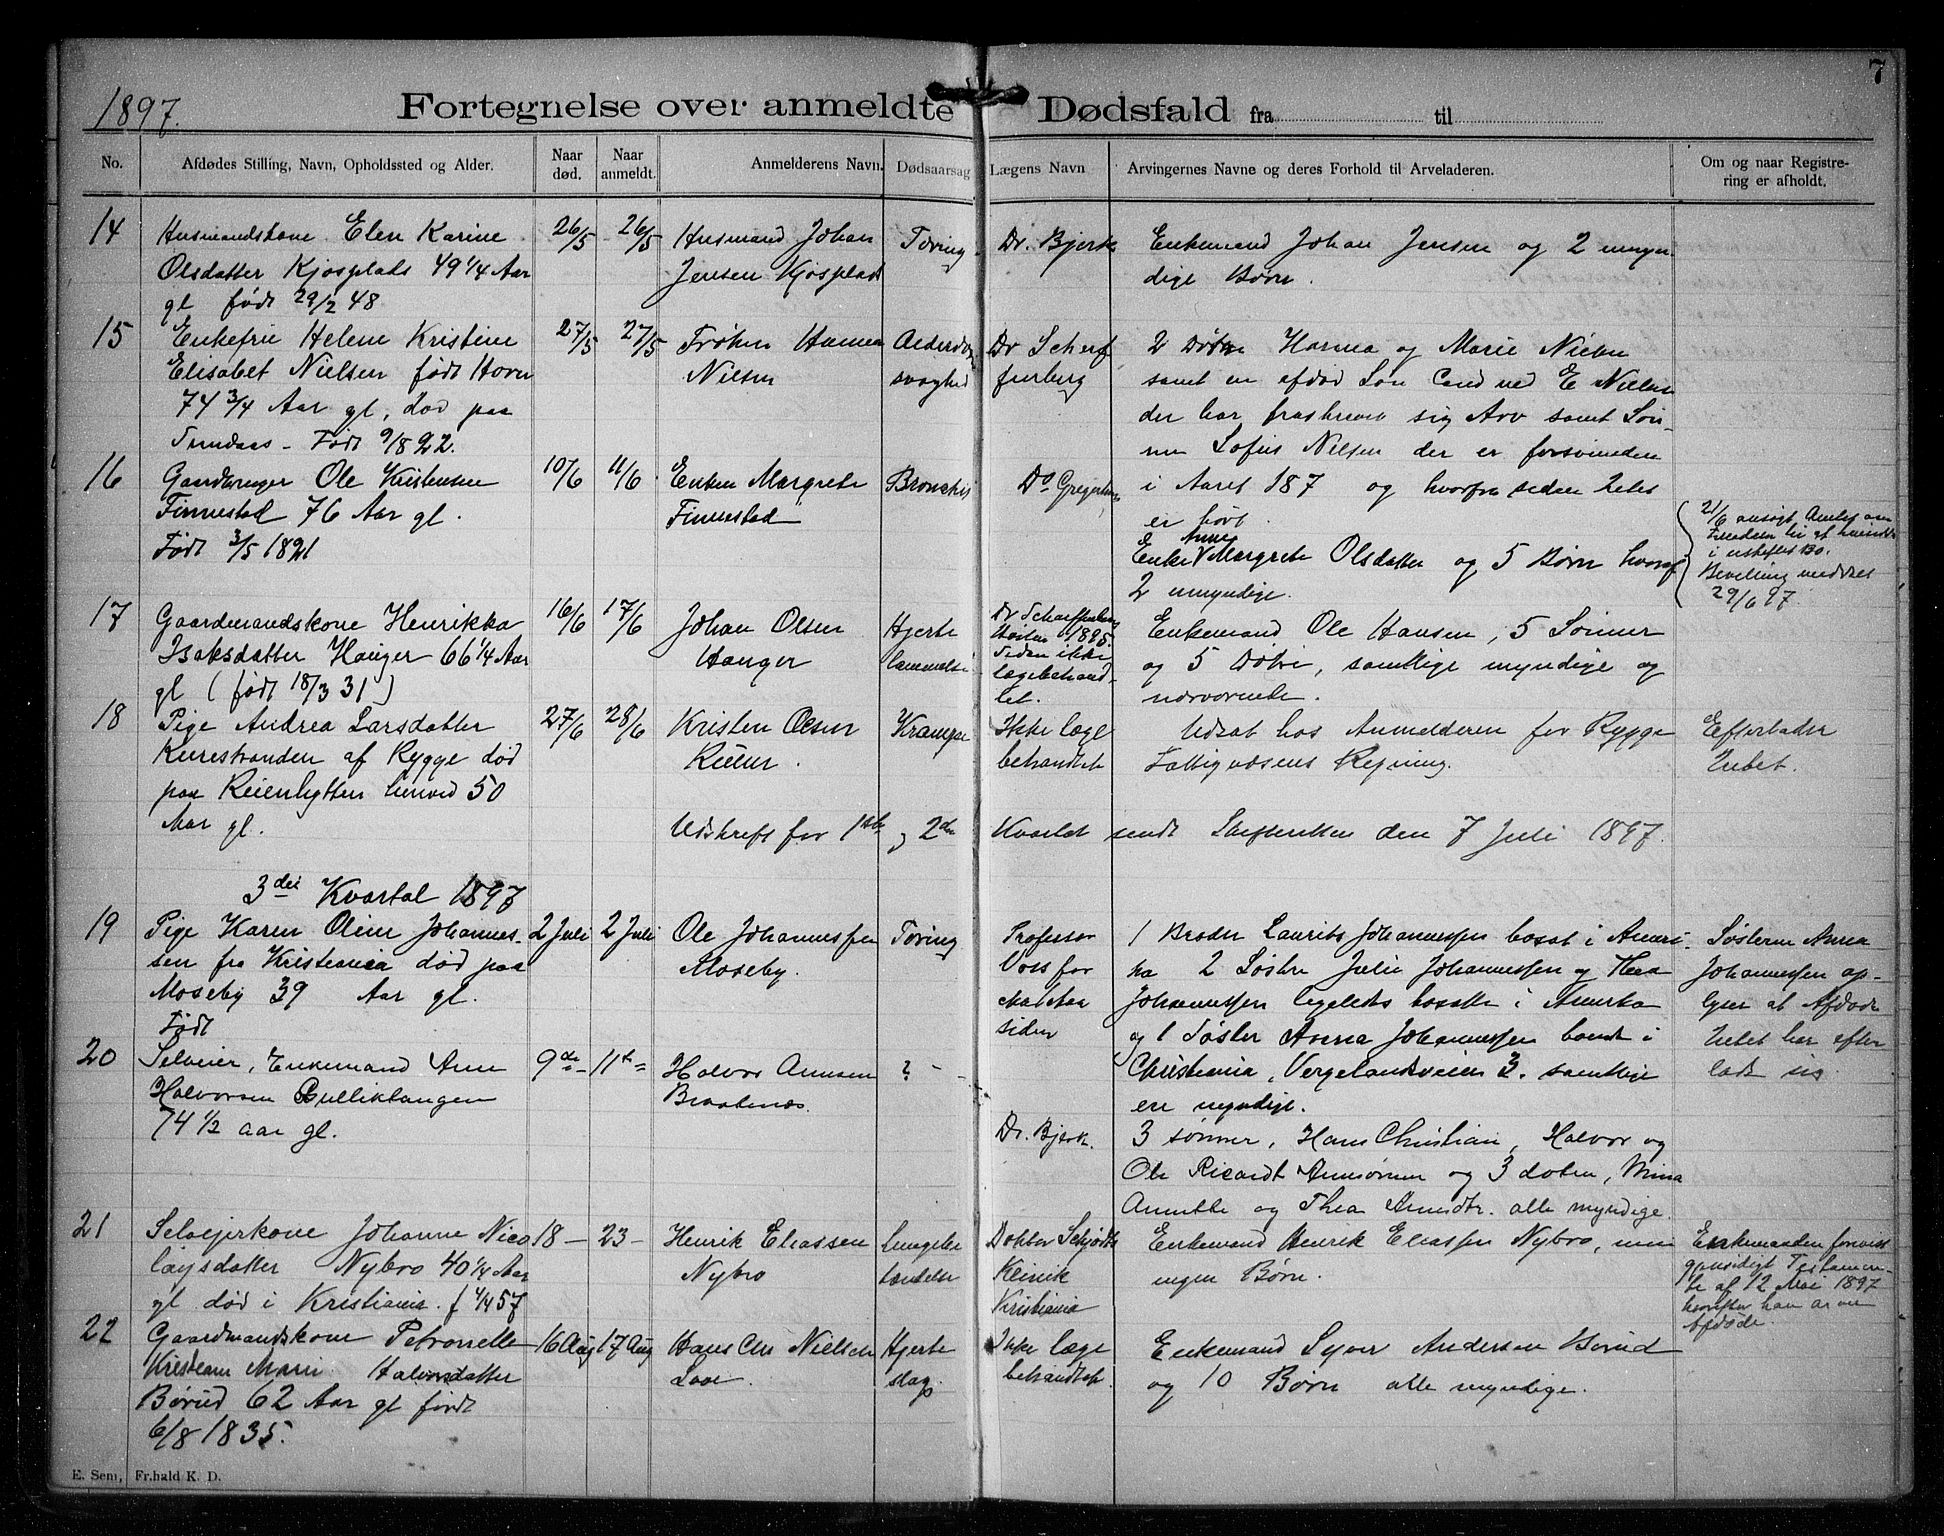 1897.
Fortegnelse over anmeldte Dødsfald fra til
7
No. Afdødes Stilling, Navn, Opholdssted og Alder. Naar død. Naar anmeldt. Anmelderens Navn. Dødsaarsag Lægens Navn Arvingernes Navne og deres Forhold til Arveladeren. Om og naar Registrering er afholdt.
14 Husmandskone Elen Karine 26/5 26/5 Husmand Johan Tæring Dr. Bjerk Enkemand Johan Jensen og 2 umyn-
Olsdatter Kjosplads 49 1/4 Aar Jensen Kjosplads dige Børn.
gl født 29/2 48
15 Enkefru Helene Kristine 27/5 27/5 Frøken Hanna Alderdoms Dr Scharf 2 Døtre Hanna og Marie Nielsen
Elisabet Nielsen født Horn Nielsen svaghed fenberg samt en afdød Søn Cand med E Nielsen
74 3/4 Aar gl, død paa der har fraskrevet sig Arv samt Søn-
Født 9/8 22. nen Sofus Nielsen der er forsvunden
16 Gaardbruger Ole Kristensen 10/6 11/6 Enken Margrete Bronchit Dr Gregersen i Aaret 187 og hvorfra siden Intet
Finnestad 76 Aar gl. Finnestad er hørt.
Født 3/5 1821 Enke Anne Margrete Olsdatter og 5 Børn hvoraf
2 umyndige.
21/6 ansøgt Amtet om
Tilladelse til at hensidde
i uskiftet Bo.
Bevilling meddelt
29/6 97.
17 Gaardmandskone Henrikka 16/6 17/6 Johan Olsen Hjerte Dr Scharffenberg Enkemand Ole Hansen, 5 Sønner
Isaksdatter Hauger 66 1/4 Aar Hauger lammelse Høsten 1895. og 5 Døtre, samtlige myndige og
gl (født 18/3 31) Siden ikke lægebehandlet. nærværende.
18 Pige Andrea Larsdatter 27/6 28/6 Kristen Olsen Krampe Ikke læge Udsat hos Anmelderen for Rygge Efterlader
Kurestranden af Rygge død Reien. behandlet Fattigvæsens Regning. Intet.
paa Reienhytten henved 50
Aar gl. Udskrift for 1ste og 2det Kvartal sendt Skifteretten den 7 Juli 1897.
3die Kvartal 1897
19 Pige Karen Oline Johannes- 2 Juli 2 Juli Ole Johannessen Tæring Professor 1 Broder Laurits Johannessen bosat i Ameri- Søsteren Anna
sen fra Kristiania død paa Moseby. Voss for ka 2 Søstre Julie Johannessen og Thea Johannessen op-
Moseby 39 Aar gl. siden Johannessen ligeledes bosatte i Amerika lyser at Afdøde
Født og 1 Søster Anna Johannessen bosat i Intet har efter-
Christiania, Vergelandsveien 3. samtlige ladt sig
ere myndige.
20 Selveier, Enkemand Arne 9de 11te Halvor Arnesen ? Dr. Bjerk. 3 sønner, Hans Christian, Halvor og
Halvorsen Gulliklangen Braatenæs. Ole Ricardt Arnesønner og 3 døtre, Mina
74 1/2 aar gl. og Thea Arnesdtr. alle myndige.
21 Selvejerkone Johanne Nico 18 — 23 — Henrik Eliassen Lungebe Doktor Schjødts Enkemand Henrik Eliassen Nybro, men
laysdatter Nybro 40 1/4 Aar Nybro tændelse Klinik ingen Børn.
gl død i Kristiania. f 4/4 57 Kristiania
Enkemanden forevist
gjensidigt Testamen-
te af 12 Mai 1897
hvorefter han arver
Afdøde.
22 Gaardmandskone Petronelle 16 Aug 17 Aug Hans Chr Nielsen Hjerte Ikke læge Enkemand Syver Andersen Børud
Kristiane Marie Halvorsdatter Laae. slag. behandlet. og 10 Børn alle myndige.
Børud 62 Aar gl født
6/8 1835.
E. Sem, Fr.hald K. D.